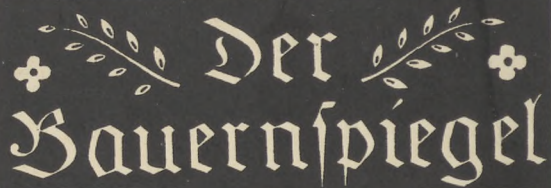 Der
Bauernſpiegel